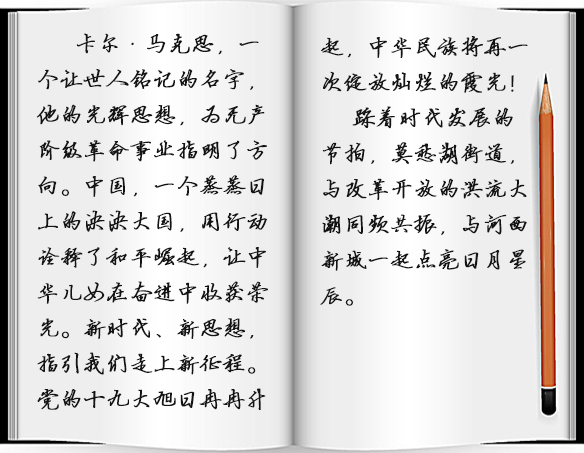 卡尔·马克思，一
个让世人铭记的名字，
他的光辉思想，为无产
阶级革命事业指明了方
向。中国，一个蒸蒸日
上的泱泱大国，用行动
诠释了和平崛起，让中
华儿女在奋进中收获荣
光。新时代、新思想，
指引我们走上新征程。
党的十九大旭日冉冉升
起，中华民族将再一
次绽放灿烂的霞光！
踩着时代发展的
节拍，莫愁湖街道，
与改革开放的洪流大
潮同频共振，与河西
新城一起点亮日月星
辰。